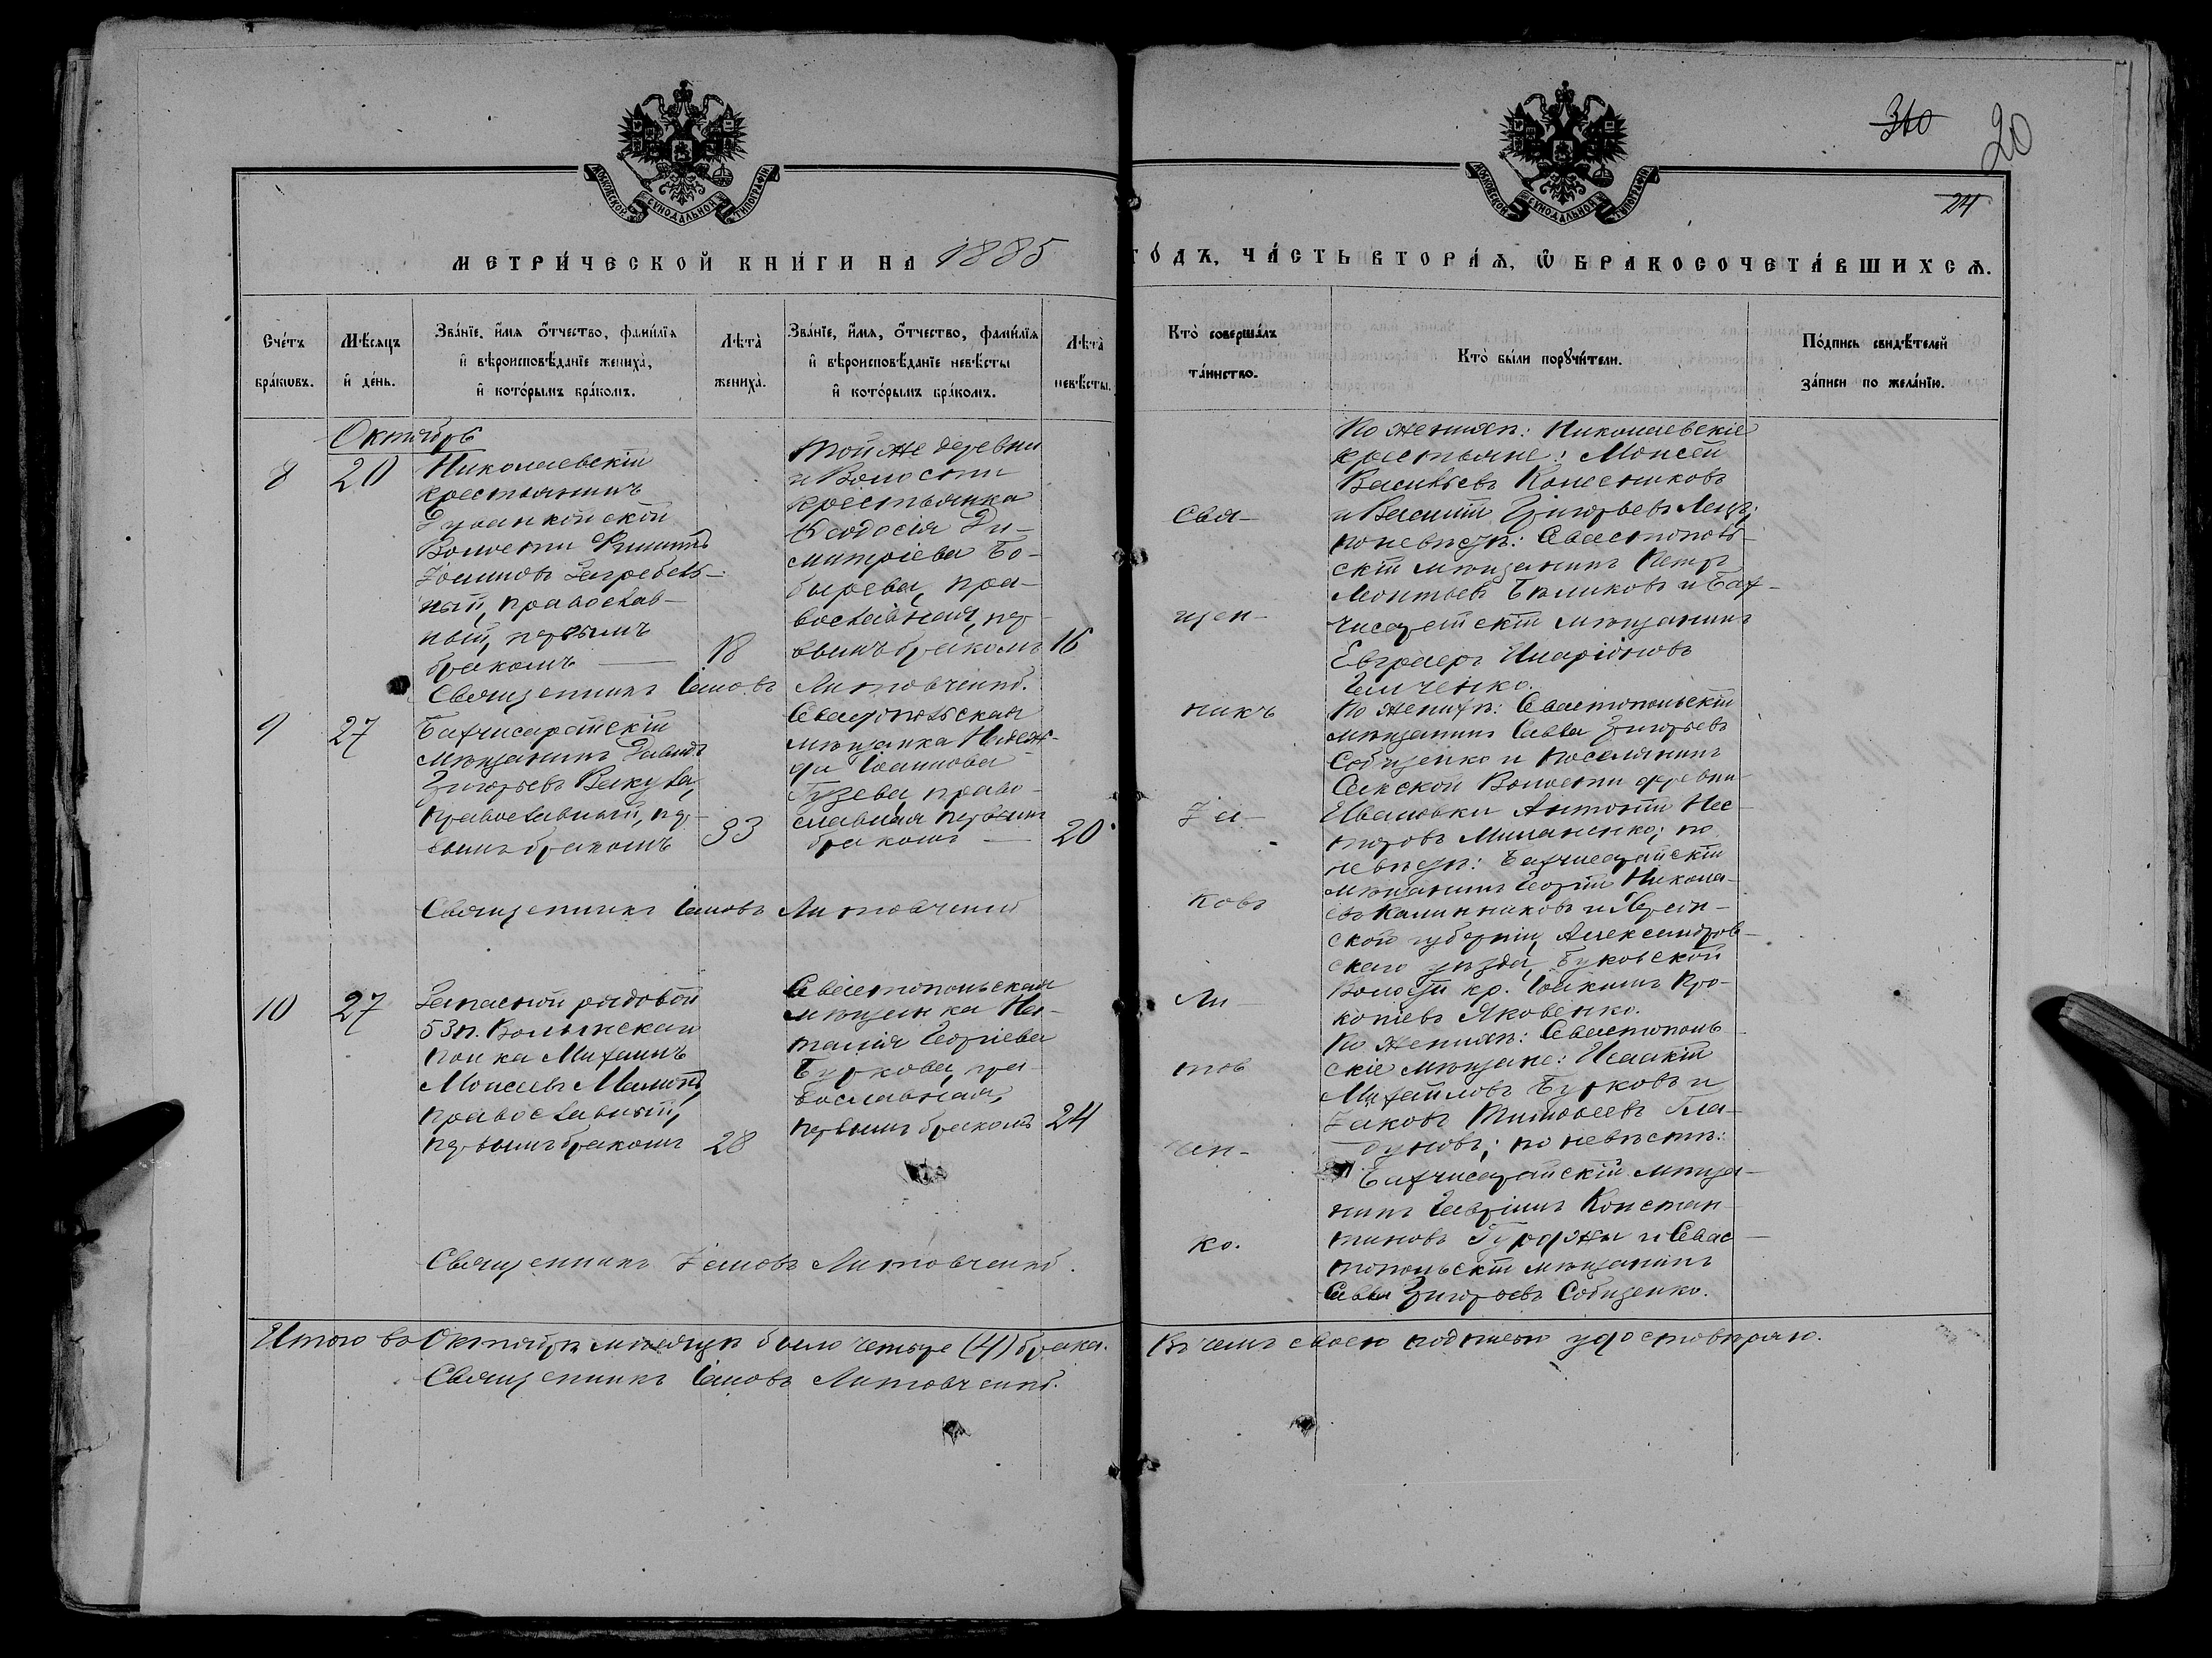 360
20
24
МОСКОВСКОЙ СѴНОДАЛЬНОЙ ТИПОГРАФІИ
МОСКОВСКОЙ СѴНОДАЛЬНОЙ ТИПОГРАФІИ
МЕТРИ́ЧЕСКОЙ КНИ́ГИ НА 1885
ГО́ДЪ, ЧА́СТЬ ВТОРА́Ѧ, Ѽ БРАКОСОЧЕТА́ВШИХСѦ.
Сче́тъ бра́кѡвъ.
Мѣ́сяцъ и҆ де́нь.
Зва́нїе, и҆́мѧ ѻ҆́тчество, фами́лїѧ
и҆ вѣроисповѣ́данїе жениха̀,
и҆ кото́рымъ бра́комъ.
Лѣта̀ жениха̀.
Зва́нїе, и҆́мѧ, ѻ҆́тчество, фами́лїѧ
и҆ вѣроисповѣ́данїе невѣ́сты
и҆ кото́рымъ бра́комъ.
Лѣта̀ невѣ́сты.
Кто̀ соверша́лъ
та́инство.
Кто̀ бы́ли порꙋчи́тели.
По́дпись свидѣ́телей
за́писи по жела́нїю.
Октябрь
8
20
Николаевскій
крестьянинъ
Дуванкойской
Волости Филиппъ
Іоанновъ Загребель-
ный, православ-
ный, первымъ
бракомъ
18
Той же деревни
и Волости
крестьянка
Ѳеодосія Ди-
митріева Бо-
бырева, пра-
вославная, пер-
вымъ бракомъ
16
Священникъ Іаковъ Литовченко.
По женихѣ: Николаевскіе
крестьяне: Моисей
Васильевъ Колесниковъ
и Василій Григорьевъ
по невѣстѣ: Севастополь-
скій мѣщанинъ Петръ
Леонтьевъ Бѣликовъ и Бах-
чисарайскій мѣщанинъ
Евграфъ Иларіоновъ
Ильченко.
9
27
Бахчисарайскій
мѣщанинъ Давидъ
Григорьевъ Вакула,
православный, пер-
вымъ бракомъ
33
Севастопольская
мѣщанка Надеж-
да Іоаннова
Гузева, право-
славная первымъ
бракомъ
20
Священникъ Іаковъ Литовченко
По женихѣ: Севастопольскій
мѣщанинъ Савва Григорьевъ
Собценко и поселянинъ
Сакской Волости деревни
Ивановки Антоній Нес-
торовъ Миланенко; по
невѣстѣ: Бахчисарайскій
мѣщанинъ Георгій Никола-
евъ Калинниковъ и Херсон-
ской губерніи, Александров-
скаго уѣзда, Буковской
Волости кр. Іоакимъ Про-
копіевъ Яковенко.
10
27
Запасной рядовой
53п. Волынскаго
полка Михаилъ
Моисеевъ
православный,
первымъ бракомъ
28
Севастопольская
мѣщанка На-
талія Георгіева
Буркова, пра-
вославная,
первымъ бракомъ
24
Священникъ Іаковъ Литовченко.
По женихѣ: Севастополь-
скіе мѣщане: Исаакій
Михайловъ Бурковъ и
Іаковъ Тимоѳеевъ Гла-
дуновъ; по невѣстѣ:
Бахчисарайскій мѣща-
нинъ Гавріилъ Констан-
тиновъ Гурджи и Севас-
топольскій мѣщанинъ
Савва Григорьевъ Собценко.
Свя-
щен-
никъ
Іа-
ковъ
Ли-
тов
чен-
ко.
Итого въ Октябрѣ мѣсяцѣ было четыре (4) брака. Въ чемъ своею подписью удостовѣряю.
Священникъ Іаковъ Литовченко.